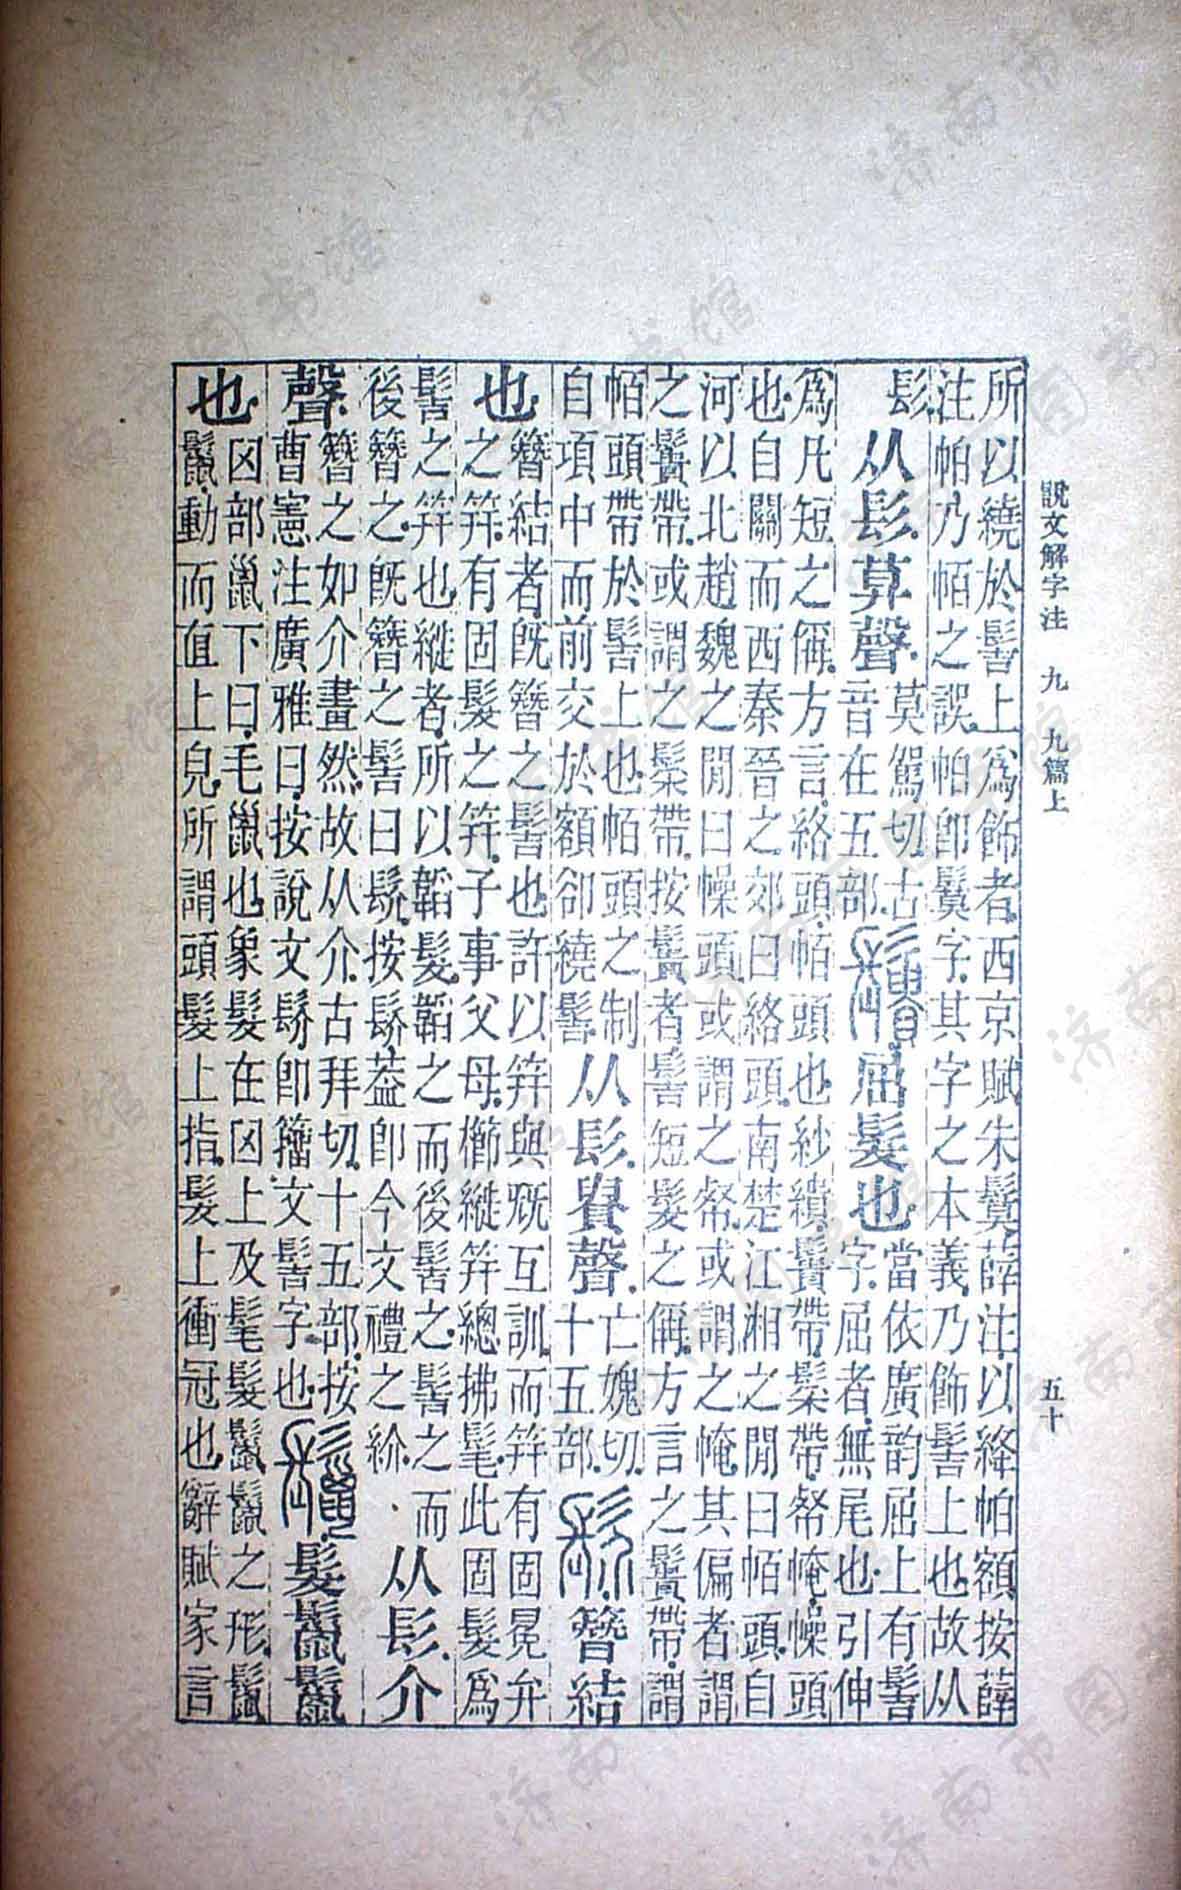 說文解字注 九 九篇上 五十
所以繞於髻上爲飾者西京賦朱鬕薛注以絳帕額按薛
注帕乃帞之誤帕卽鬕字其字之本義乃飾髻上也故从
髟从髟莫聲莫駕切古
音在五部
屈髮也當依廣韵屈上有髻
字屈者無尾也引伸
爲凡短之偁方言絡頭帞頭也紗繢𩯣帶髤帶帑㡋幧頭
也自關而西秦晉之郊曰絡頭南楚江湘之閒曰帞頭自
河以北趙魏之閒曰幧頭或謂之帑或謂之㡋其偏者謂
之𩯣帶或謂之髤帶按𩯣者髻短髮之偁方言之𩯣帶謂
帞頭帶於髻上也帞頭之制
自項中而前交於額卻繞髻
从髟貴聲亡媿切
十五部
簪結
也簪結者旣簪之髻也許以筓與兂互訓而筓有固冕弁
之筓有固髮之筓子事父母櫛縰筓總拂髦此固髮爲
髻之筓也縰者所以韜髮韜之而後髻之髻之而
後簪之旣簪之髻曰䯰按䯰葢卽今文禮之紒
从髟介
聲簪之如介畫然故从介古拜切十五部按
曹憲注廣雅曰按說文䯰卽籒文髻字也
髮鬣鬣
也囟部巤下曰毛巤也象髮在囟上及髦髮鬣鬣之形鬣
鬣動而直上皃所謂頭髮上指髮上衝冠也辭賦家言